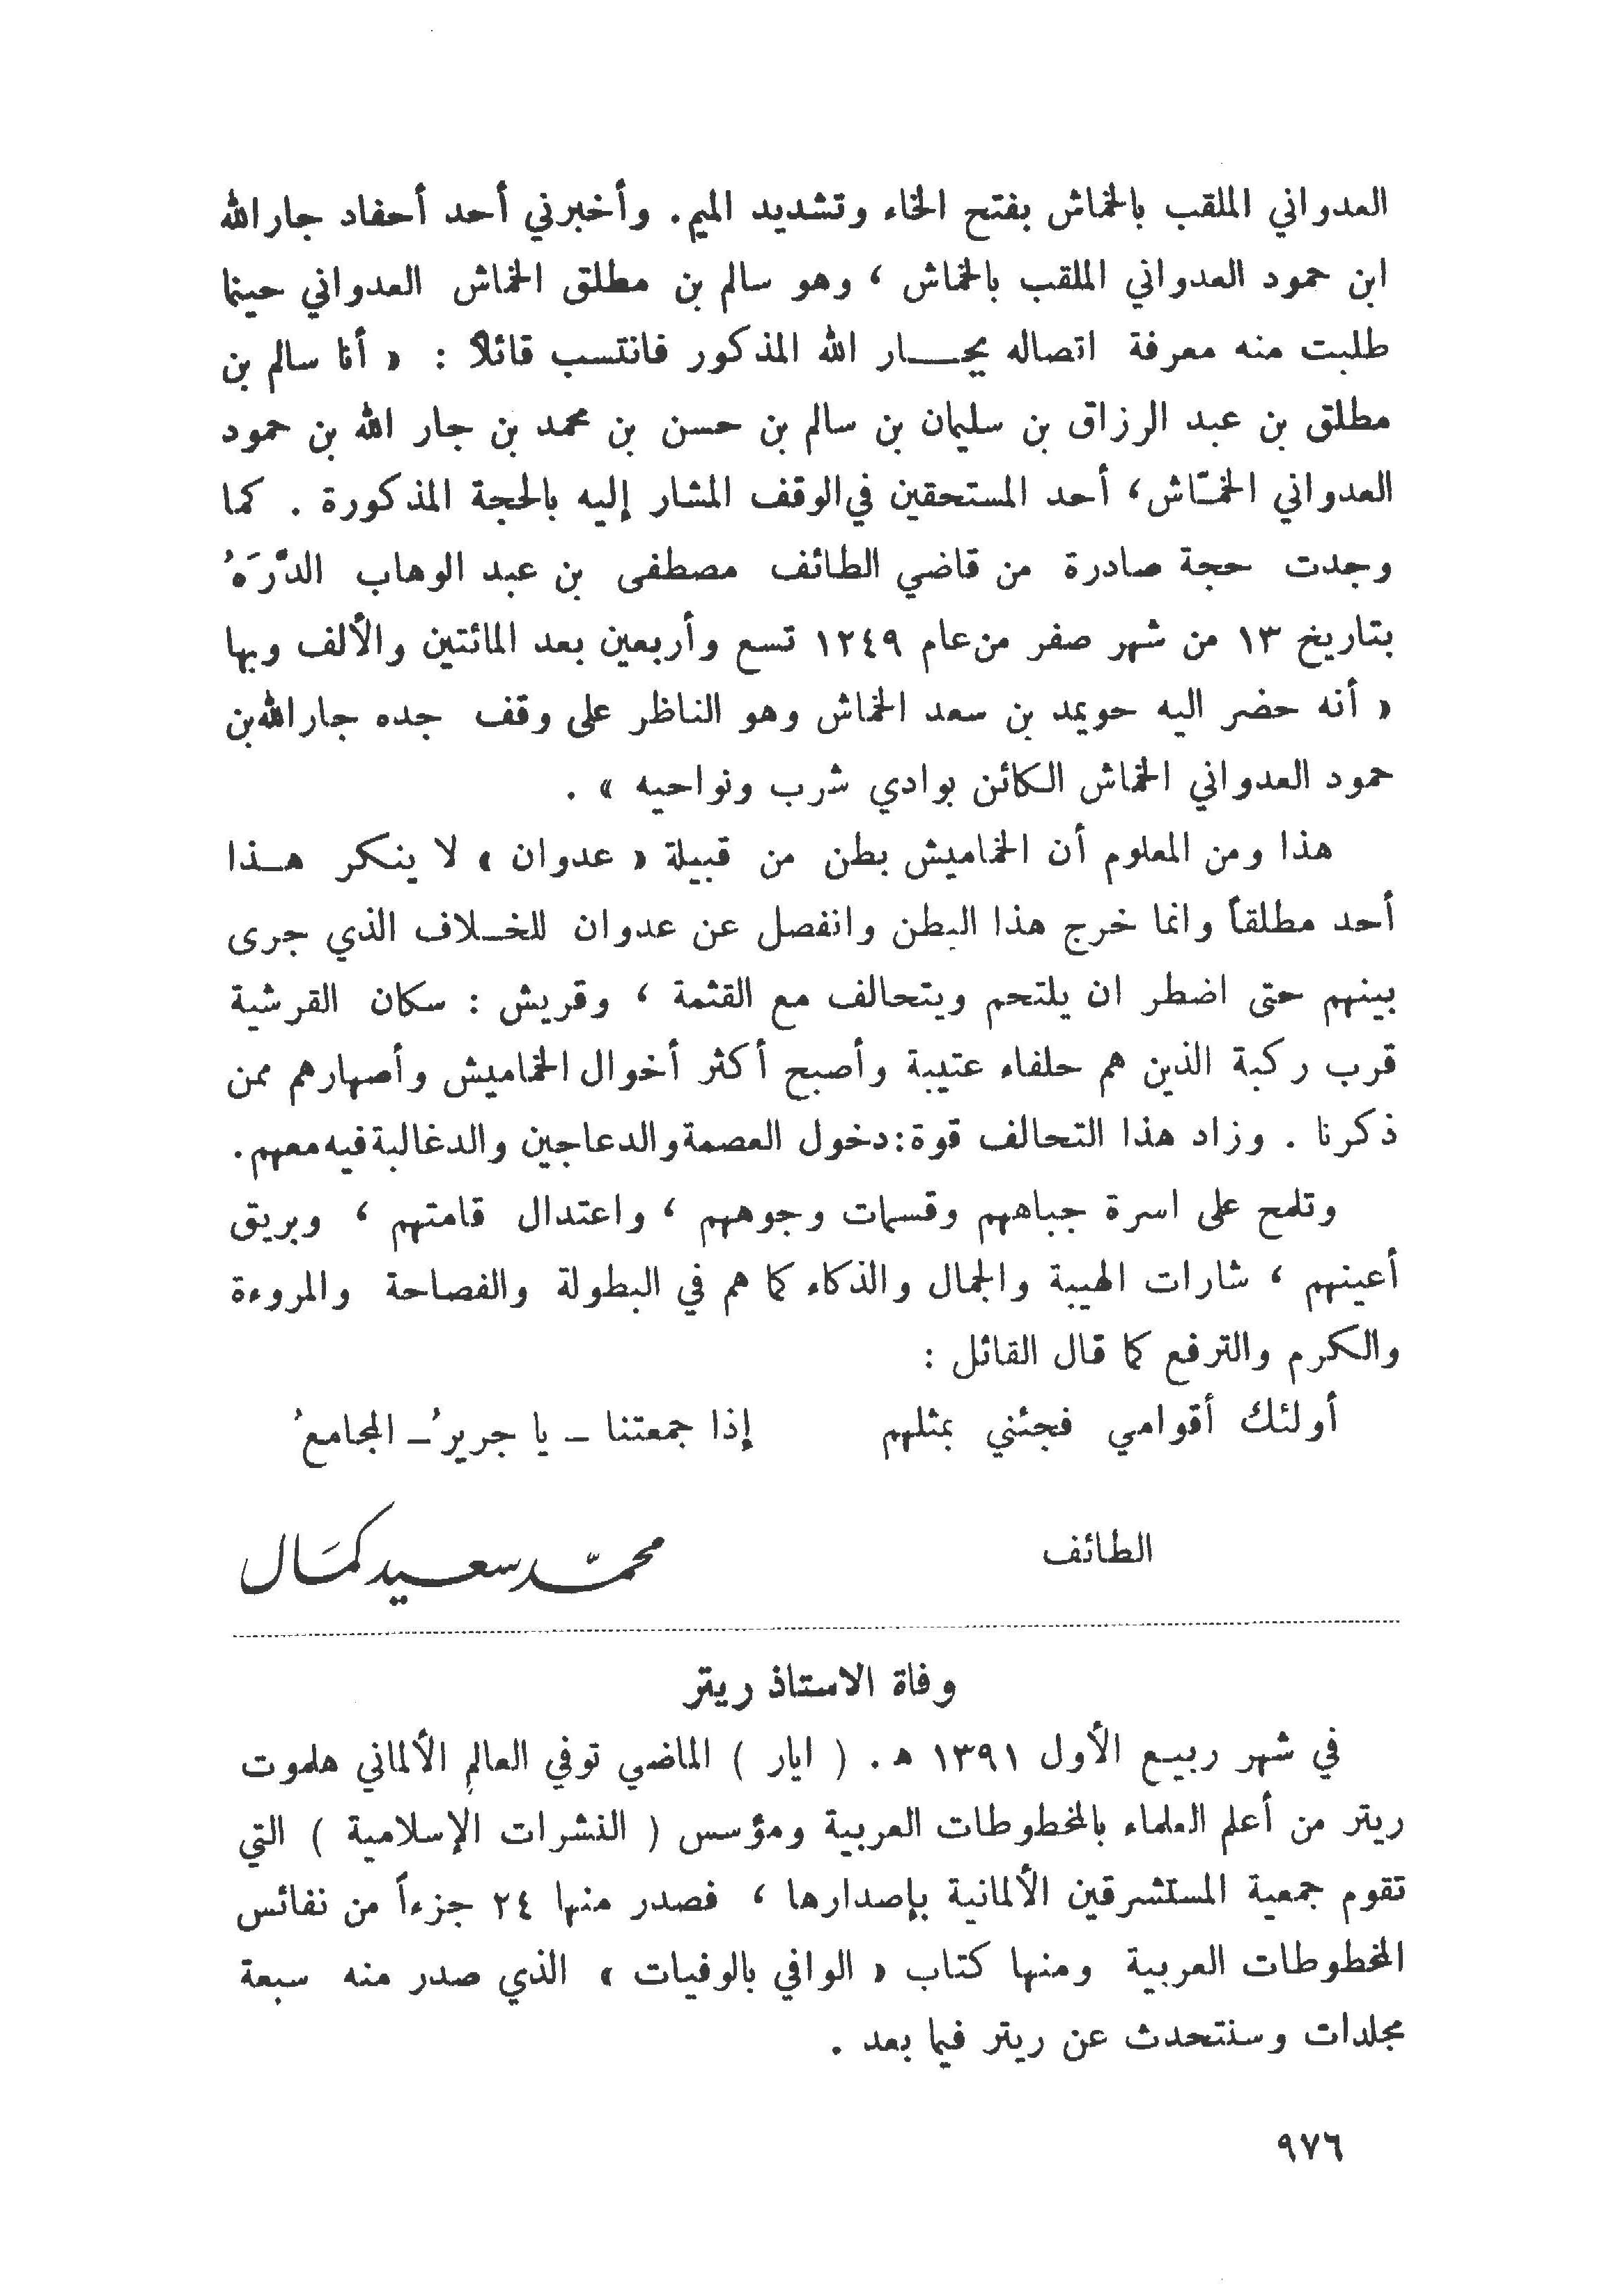 العدواني الملقب بالخماش بفتح الخاء وتشديد الميم. وأخبرني أحد أحفاد جارالله
ابن حمود العدواني الملقب بالخماش ، وهو سالم بن مطلق الخماش العدواني حينما
طلبت منه معرفة اتصاله بجـــار الله المذكور فانتسب قائلاً : « أنا سالم بن
مطلق بن عبد الرزاق بن سليمان بن سالم بن حسن بن محمد بن جار الله بن حمود
العدواني الخمـّاش، أحد المستحقين في الوقف المشار إليه بالحجة المذكورة . كما
وجدت حجة صادرة من قاضي الطائف مصطفى بن عبد الوهاب الدَّرَهُ
بتاريخ ١٣ من شهر صفر من عام ١٢٤٩ تسع وأربعين بعد المائتين والألف وبها
« أنه حضر اليه حويمد بن سعد الخماش وهو الناظر على وقف جده جارالله بن
حمود العدواني الخماش الكائن بوادي شرب ونواحيه » .
هذا ومن المعلوم أن الخماميش بطن من قبيلة « عدوان » لا ينكر هـذا
أحد مطلقاً وانما خرج هذا البطن وانفصل عن عدوان للخـلاف الذي جرى
بينهم حتى اضطر ان يلتحم ويتحالف مع القثمة ، وقريش : سكان القرشية
قرب ركبة الذين هم حلفاء عتيبة وأصبح أكثر أخوال الخماميش وأصهارهم ممن
ذكرنا . وزاد هذا التحالف قوة: دخول العصمة والدعاجين والدغالبة فيه معهم.
وتلمح على اسرة جباههم وقسمات وجوههم ، واعتدال قامتهم ، وبريق
أعينهم ، شارات الهيبة والجمال والذكاء كما هم في البطولة والفصاحة والمروءة
والكرم والترفع كما قال القائل :
أولئك أقوامي فجئني بمثلهم إذا جمعتنا ـ يا جريرُ ـ المجامعُ
الطائف محمّد سعيد كمَال
وفاة الاستاذ ريتر
في شهر ربيع الأول ١٣٩١ ه . ( ايار ) الماضي توفي العالم الألماني هلموت
ريتر من أعلم العلماء بالمخطوطات العربية ومؤسس ( النشرات الإسلامية ) التي
تقوم جمعية المستشرقين الألمانية بإصدارها ، فصدر منها ٢٤ جزءاً من نفائس
المخطوطات العربية ومنها كتاب « الوافي بالوفيات » الذي صدر منه سبعة
مجلدات وسنتحدث عن ريتر فيما بعد .
٩٧٦